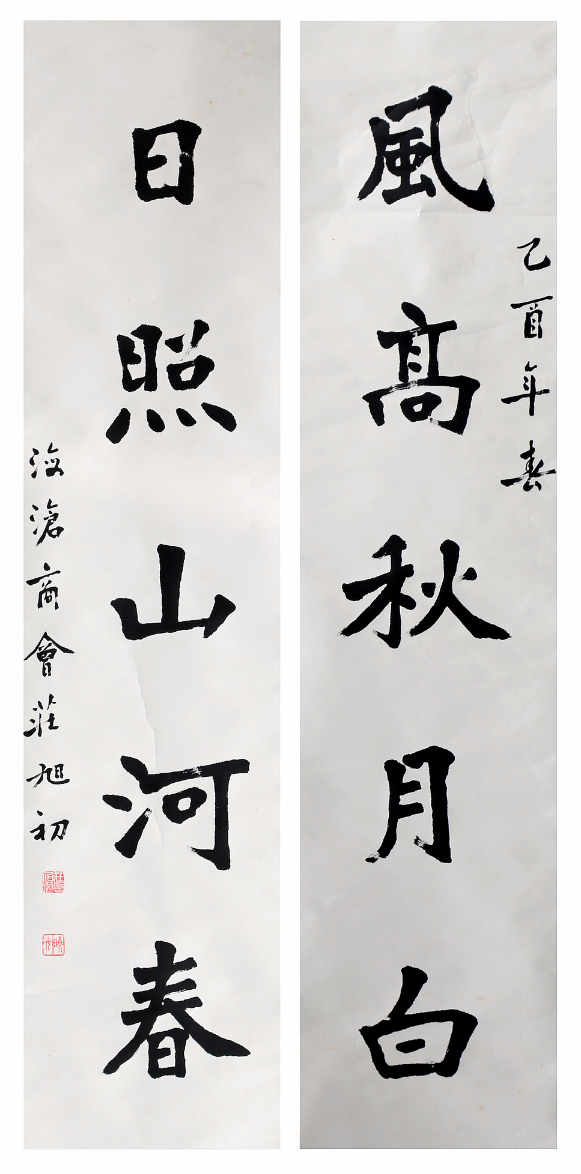 乙酉年春
風高秋月白
日照山河春
海滄商會莊旭初